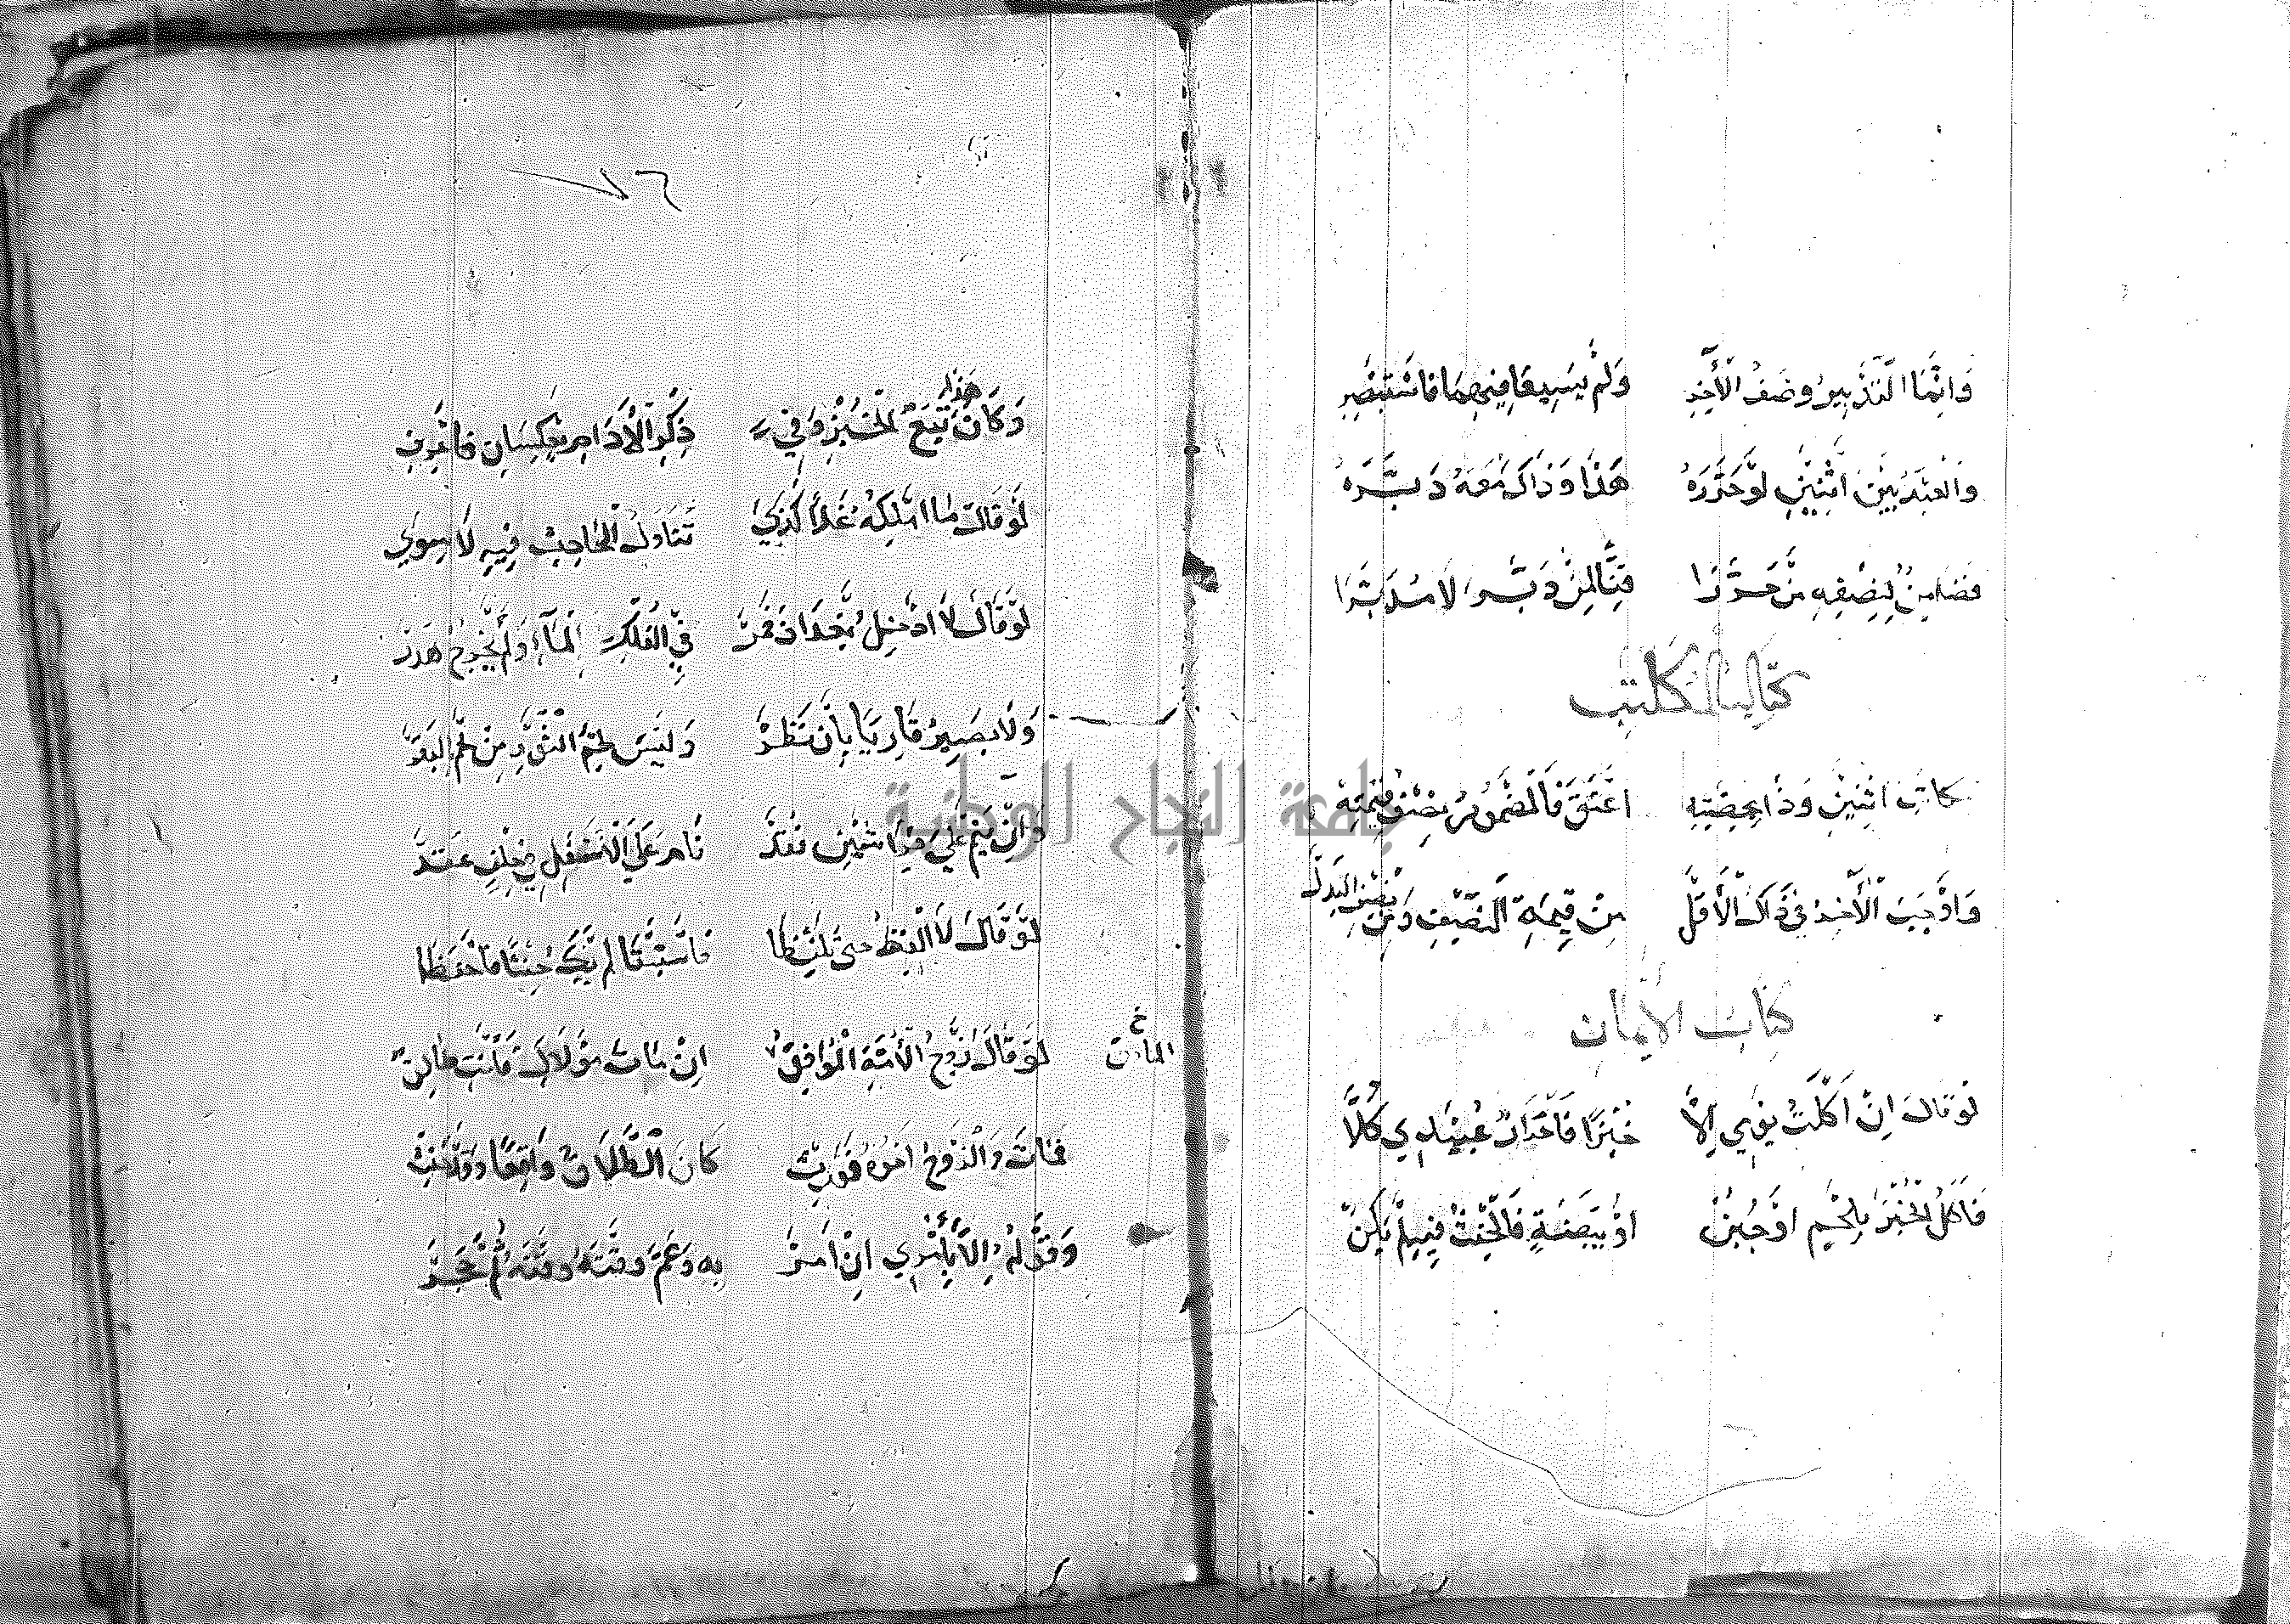 وَانَّمَا التَّدْبِيرُ وصْفُ الْأَخِذِ وَلَمْ يَسِيعَا فِيهِمَا فَاسْتَبْصِرِ
وَالْعَبْدُ بَيْنَ اثْنَيْنِ لَوْ حَرَّرَهُ هَذَا وَذَاكَ مَعَهُ دَبَّرَهُ
فَضَامِنٌ لِنِصْفِهِ مَنْ حَرَّرَا قِنًّا لِمَنْ دَبَّرَ لَا مُدَبَّرَا
كتاب المكاتب
مكاتب اثْنَيْنِ وَذَا بحصته اعْتَقَ فَالْمَضْمُونُ نِصْفُ قِيمَتِهْ
وَاوْجَبَ الْأَخِيرُ فِي ذَاكَ الْأَقَلّ مِنْ قِيمَةِ النِّصْفِ وَمِنْ نِصْفِ الْبَدَلْ
كتاب الأيمان
لَوْ قَالَ اِنْ اَكَلْتُ يَوْمِي اِلَّا خُبْزًا فَأَحْرَارٌ عَبِيدِي كُلَّا
فَاَكْلُ الْخُبْزَ بِلَحْمٍ اوْ جُبُنْ اوْ بَيْضَةٍ فَالْحِنْثُ فِيهِ لَمْ يَكُنْ
وَكَانَ هَذَا تَبَعَ الْخُبْزِ وَفِي ذِكْرِ الْأَدَامِ يعكسان فَاعْرِفِ
لَوْ قَالَ مَا امْلِكُهُ غَدًا كَذِي تَنَاوَلَ الْحَادِثَ فِيهِ لَا سِوَى
لَوْ قَالَ لَا ادْخُلُ بَغْدَادَ فَمَرّ فِي الْفُلْكِ الْمَاءَ وَلَمْ يَخْرُجْ هَدَرْ
وَلَا يَصِيرُ قَارِيًا بِأَنْ نَظَرْ وَلَيْسَ لَحْمُ الثَّوْرِ مِنْ لَحْمِ الْبَقَرْ
وَانْ يَنَمْ عَلَى فِرَاشَيْنِ فَقَدْ نَامَ عَلَى الْأَسْفَلِ فِي حِلْفٍ عَقَدْ
لَوْ قَالَ لَا الْفِظُ حَتَّى تَلْفِظَا فَاسْتَبَقَا لَمْ يَكُ حِنْثًا فَاحْفَظَا
خ
المادق
لَوْ قَالَ زَوْجُ الْأَمَةِ الْمُوَافِقُ اِنْ مَاتَ مَوْلَاكِ فَأَنْتِ طَالِقُ
فَمَاتَ وَالزَّوْجُ اَخُوهُ فَوَرِثْ كَانَ الطَّلَاقُ وَاقِعًا
وَقَوْلُهُ اِلَّا بِأَمْرِي اِنْ اَمَرْ بِهِ وَعَمَّ وَقْتَهُ ثُمَّ حَجَرْ
جامعة النجاح الوطنية